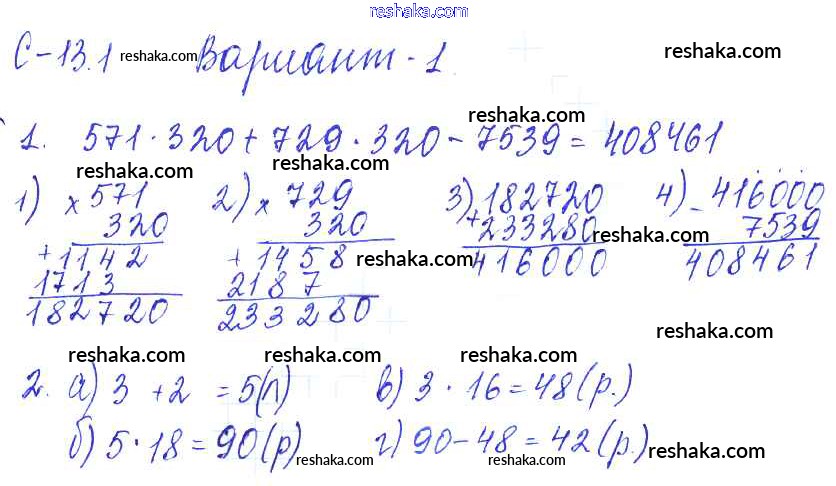 reshaka.com
С-13.1 reshaka.com Вариант-1. reshaka.com
reshaka.com
1. 571·320+729·320-7539=408461
reshaka.com reshaka.com
1) x 571 2) x 729 3) 182720 4) - 416000
320 320 + 233280 reshaka.com 7539
+ 1142 + 1458 reshaka.com 416000 408461
1713 2187
182720 233280
reshaka.com
reshaka.com reshaka.com reshaka.com
2. а) 3 + 2 = 5(л) в) 3 · 16 = 48(р.)
reshaka.com reshaka.com
б) 5·18=90(р) г) 90-48=42(р.) reshaka.com
reshaka.com reshaka.com